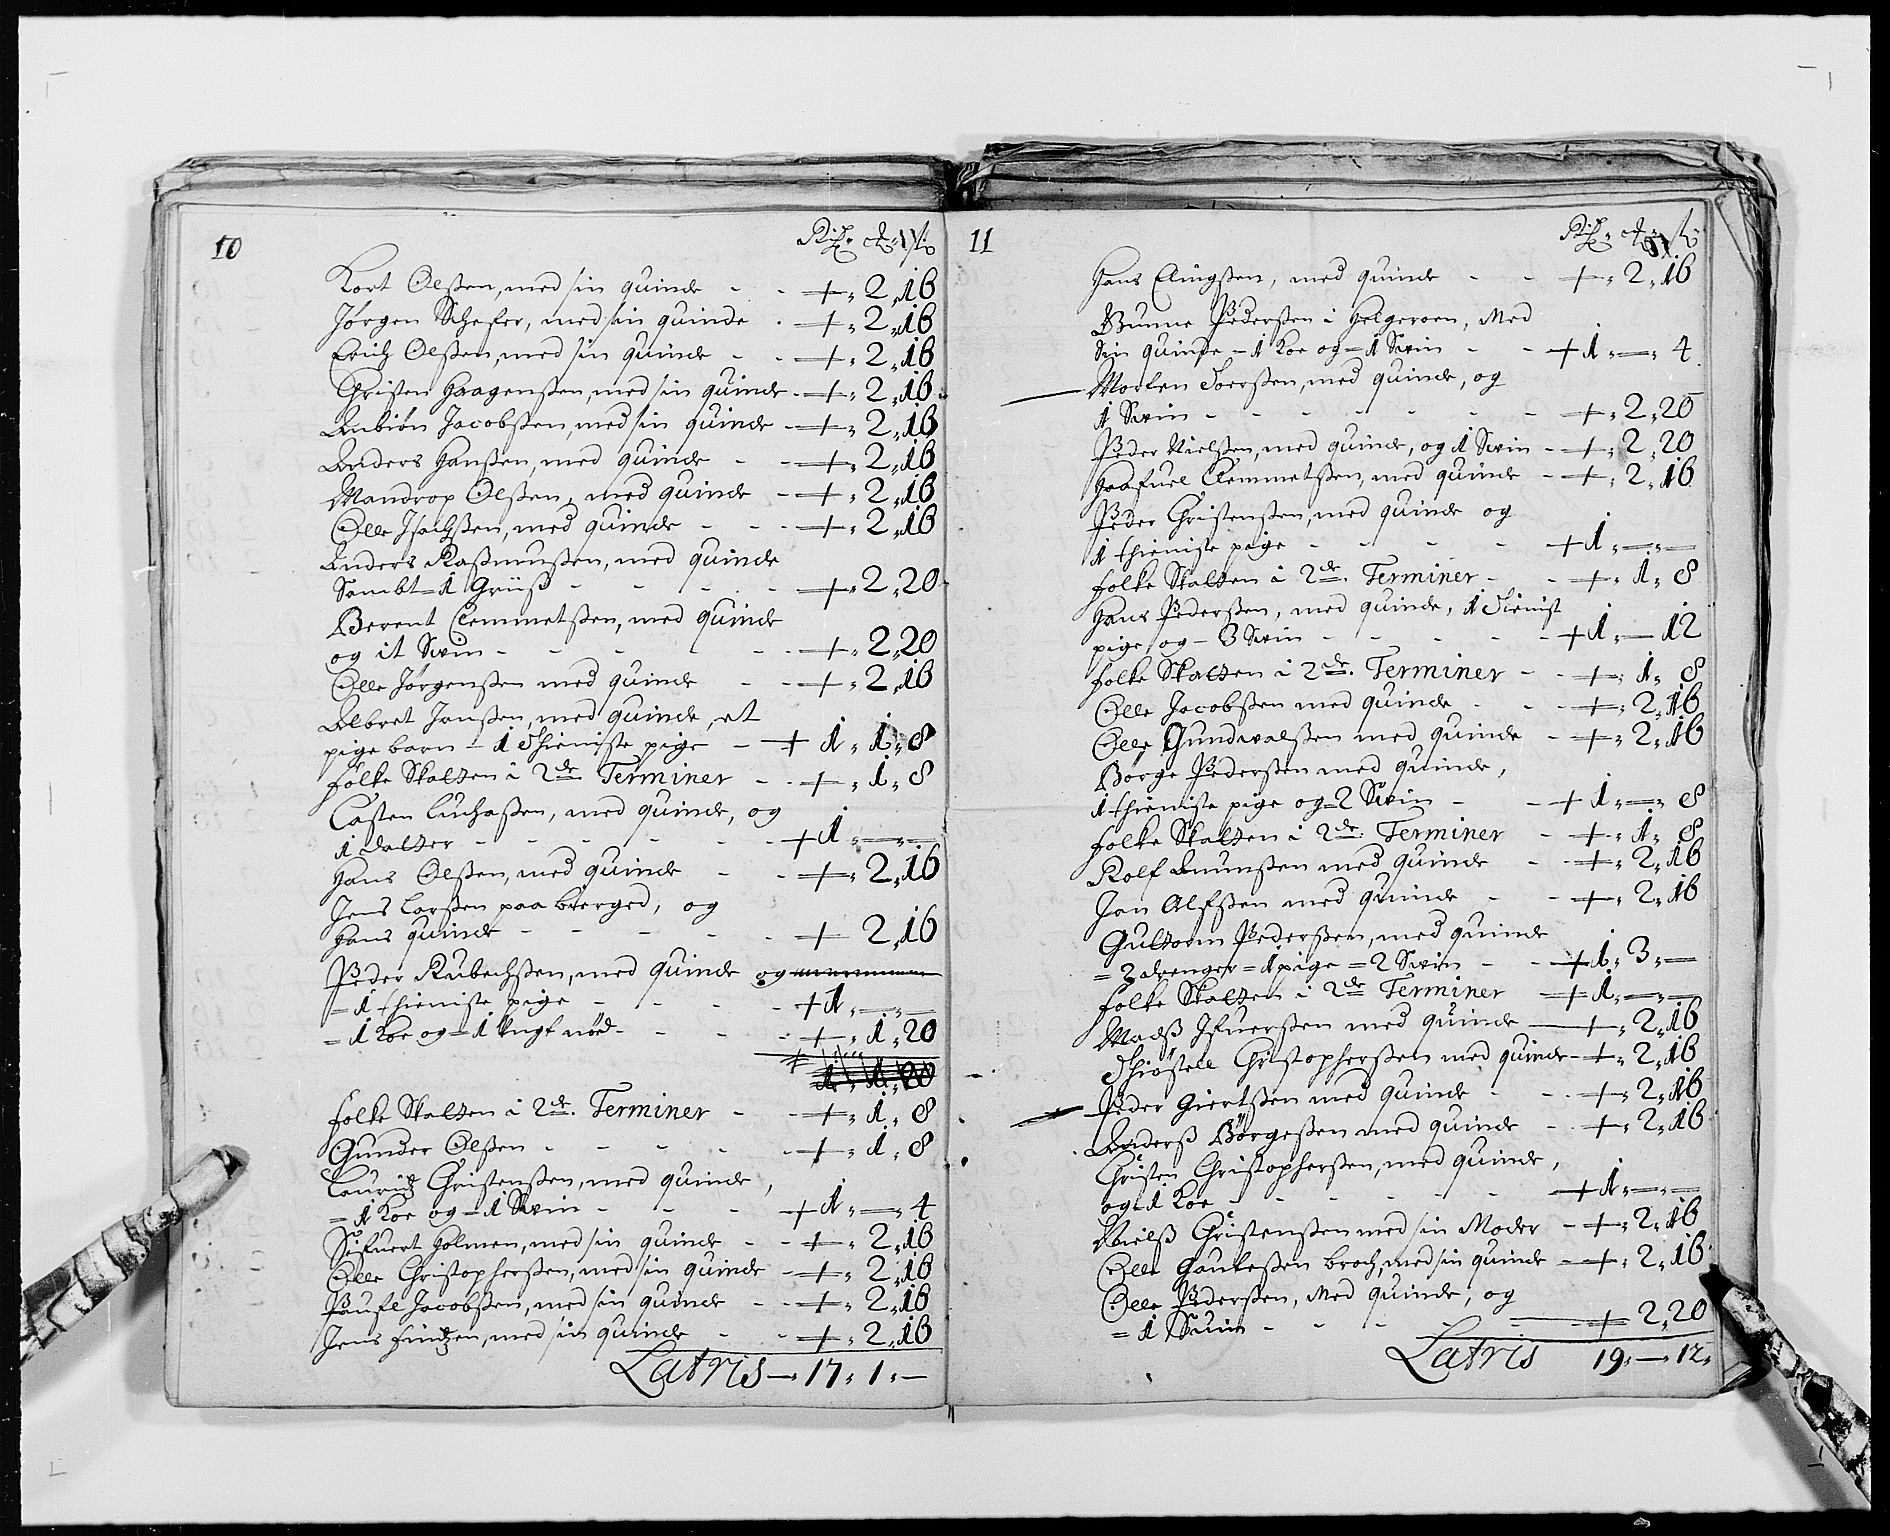 10
Kort Olßen, med sin quinde - - + „ 2 „ 16
Jørgen Schefer, med sin quinde - + „ 2 „ 16
Erich Olßen, med sin quinde - - + „ 2 „ 16
Christen Haagenßen, med sin quinde - + „ 2 „ 16
Anbiøn Jacobßen, med sin quinde - + „ 2 „ 16
Anders Hanßen, med quinde - - + „ 2 „ 16
Mandrop Olßen, med quinde - + „ 2 „ 16
Olle Isachßen, med quinde - - - + „ 2 „ 16
Anders Raßmußen, med quinde
Sambt = 1 Griiß - - - - + „ 2 „ 20
Berent Clemmetßen, med quinde
og it Swin - - - - - - + „ 2 „ 20
Olle Jørgenßen med quinde - - + „ 2 „ 16
Albret Janßen, med quinde, et
pige barn - 1 Thieniste pige - + 1 „ 1 „ 8
folke Skatten i 2de Terminer - - + „ 1 „ 8
Casten Luchaßen, med quinde, og
1 datter - - - - - - + 1 „ — „ —
Hans Olßen, med quinde - - + „ 2 „ 16
Jens Larßen paa bierged, og
Hans quinde - - - - - + 2 „ 16
Peder Rubechßen, med quinde og
= 1 thieniste pige - - - - + 1 „ — „ —
= 1 Koe og = 1 Ungt nød - - - - + „ 1 „ 20
folke Skatten i 2de. Terminer - - + „ 1 „ 8
Gunder Olßen - - - - - + „ 1 „ 8
Lauridz Christenßen, med quinde,
= 1 Koe og = 1 Swin - - - + 1 „ — „ 4
Sifuert Holmen, med sin quinde - - + „ 2 „ 16
Olle Christopherßen, med sin quinde - + „ 2 „ 16
Paufl Jacobßen, med sin quinde - - + „ 2 „ 16
Jens Findzen, med sin quinde - - + „ 2 „ 16
Latris — 17 „ 1 „ —
11
Hans Elingßen, med quinde - - + „ 2 „ 16
Gunne Pederßen i Helgeroen, Med
Sin quinde - 1 Koe og = 1 Swin - - + 1 „ — „ 4
Morten Toerßen, med quinde, og
1 Swin - - - - - - - + „ 2 „ 20
Peder Nielßen, med quinde, og 1 Swin - + „ 2 „ 20
Haafuel Clemmetßen, med quinde - + „ 2 „ 16
Peder Christenßen, med quinde og
1 thieniste pige - - - - - + 1 „ — „ —
folke Skatten i 2de. Terminer - - + „ 1 „ 8
Hans Pederßen, med quinde, 1 Tienist
pige, og - 3 Swin - - - - - + 1 „ — 12
folke Skatten i 2de. Terminer - - + „ 1 „ 8
Olle Jacobßen med quinde - - - + „ 2 „ 16
Olle Gundwalßen med quinde - + „ 2 „ 16
Børge Pederßen med quinde,
1 thieniste pige og = 2 Swin - - + 1 „ — „ 8
folke Skatten i 2de. Terminer - + „ 1 „ 8
Rolf Amunßen med quinde - - + „ 2 „ 16
Jan Alfßen med quinde - - + „ 2 „ 16
Guttorm Pederßen, med quinde
= 2 drenger = 1 pige = 2 Swin - - + 1 „ 3 „ —
folke Skatten i 2de Terminer — + 1 „ — „ —
Madß Ifuerßen med quinde — + „ 2 „ 16
Thiøstell Christopherßen med quinde - + „ 2 „ 16
Peder Giertßen med quinde - - + „ 2 „ 16
Anderß Børgeßen med quinde - - + „ 2 „ 16
Christen Christopherßen, med quinde,
og 1 Koe - - - - - - + 1 „ — „ —
Nielß Christenßen med sin Moder - + „ 2 „ 16
Olle Gauteßen broch, med sin quinde - + „ 2 „ 16
Olle Pederßen, Med quinde, og
= 1 Swin - - - - - + 2 „ 20
Latris 19 „ — „ 12 „